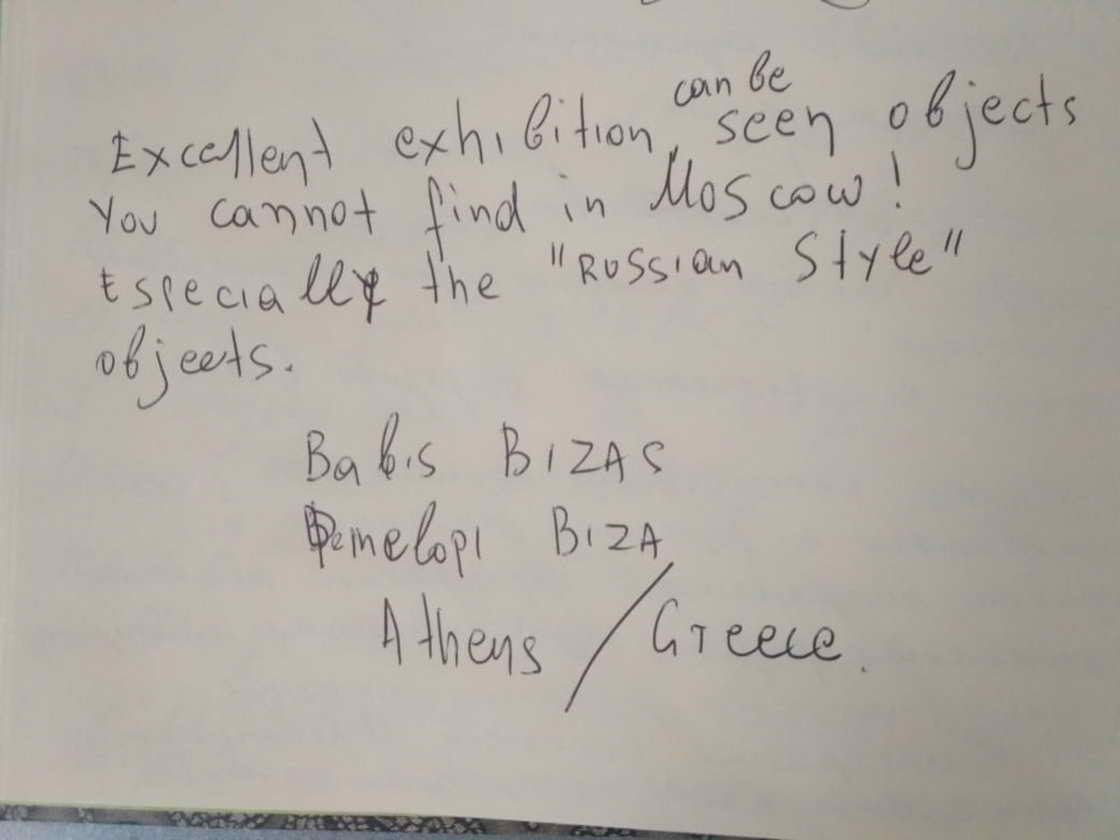 Excellent exhibition, can be seen objects
You cannot find in Moscow!
Especially the "Russian Style"
objects.
Babis BIZAS
Penelopi BIZA
Athens / Greece.